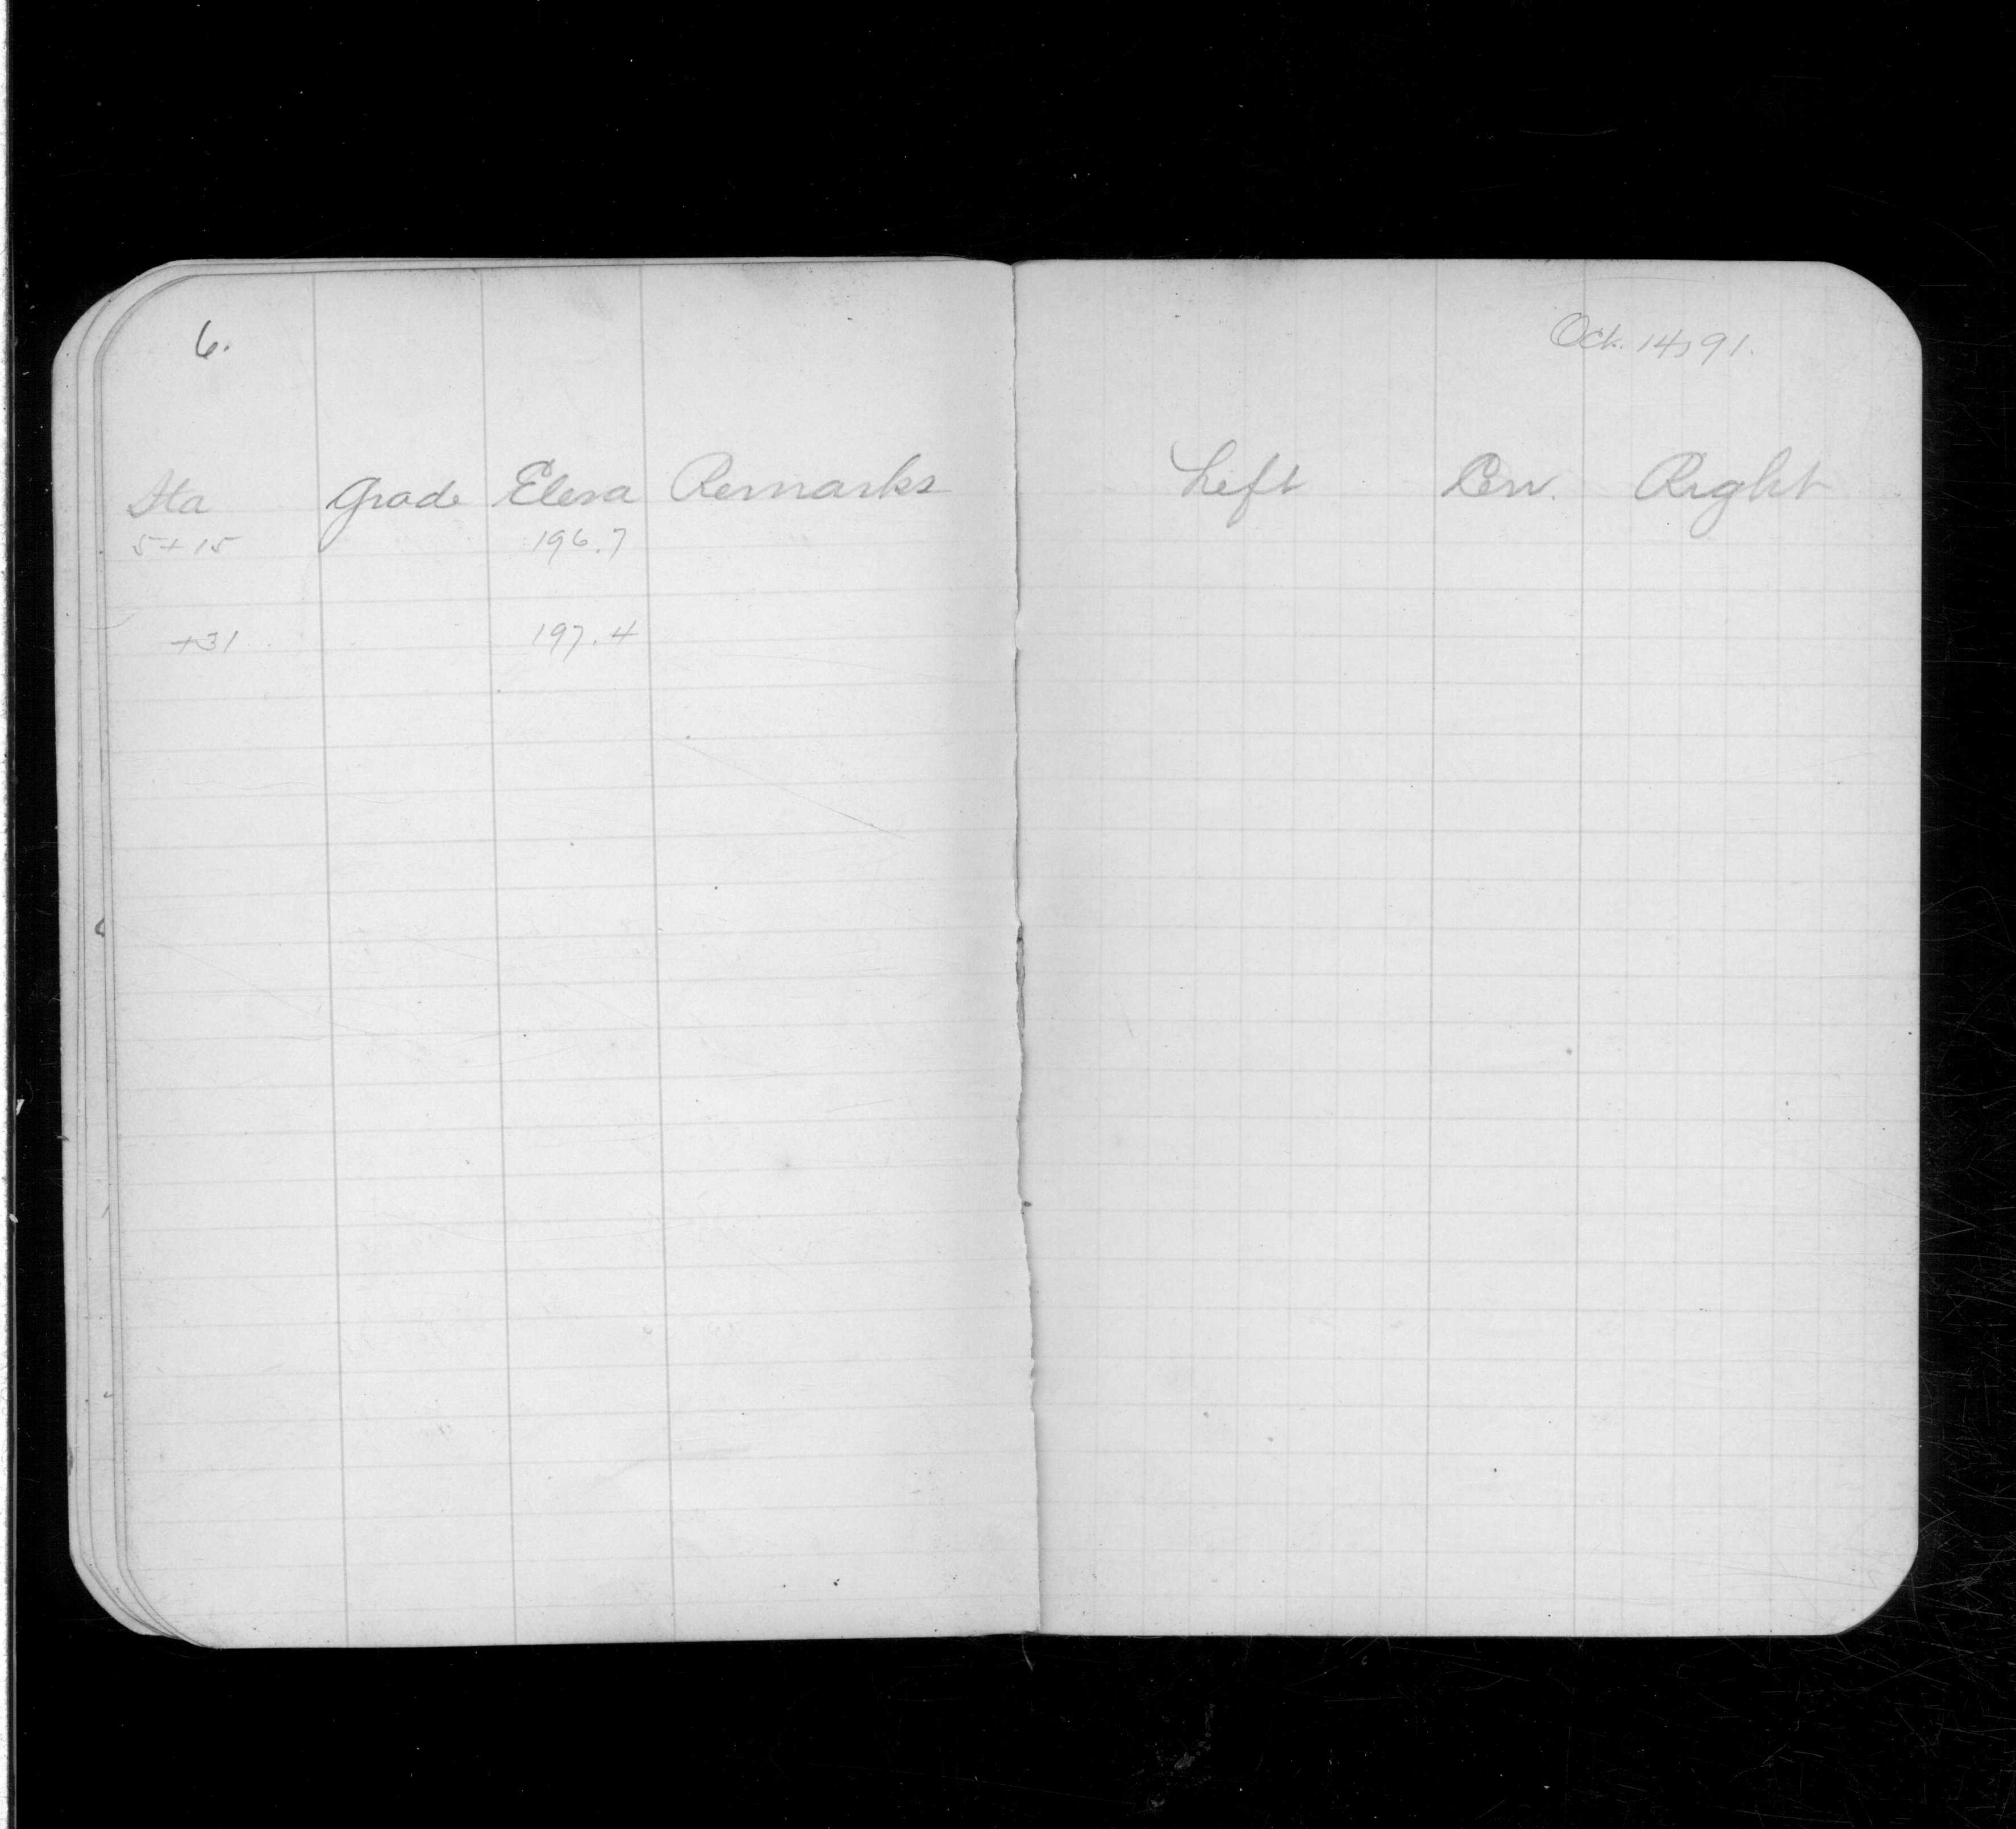 6.
Sta Grade Eleva Remarks
5+15 196.7
+31 197.4
Oct. 14, 91.
Left Cen. Right